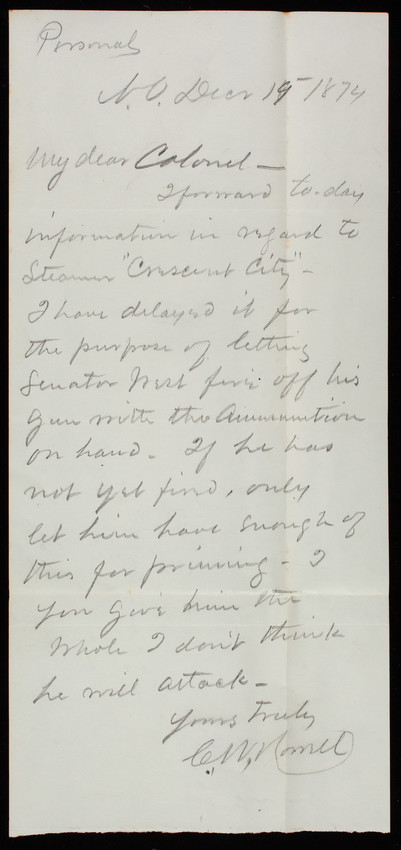 Personal
N.O. Decr 19 1874
My dear Colonel—
I forward to-day
information in regard to
Steamer "Crescent City"—
I have delayed it for
the purpose of letting
Senator West fire off his
gun with the Ammunition
on hand. If he has
not yet fired, only
let him have enough of
this for priming— I
you give him the
whole I don't think
he will attack—
Yours truly
C. W.